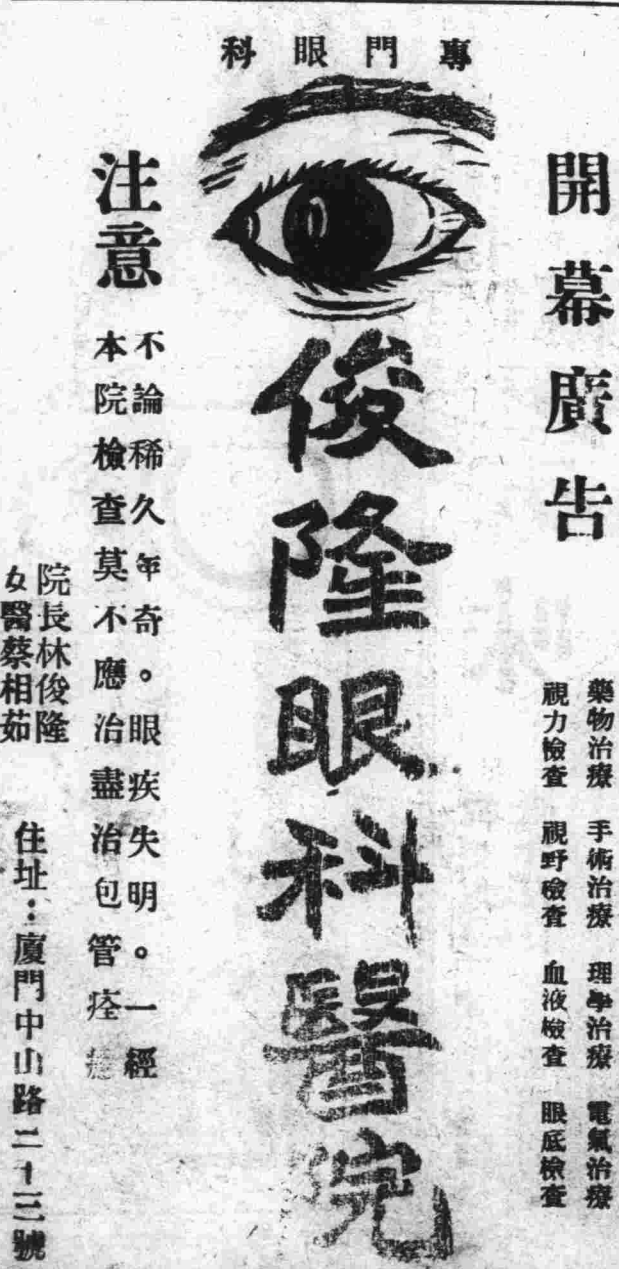 專門眼科
開幕廣告
藥物治療 手術治療 理學治療 電氣治療
視力檢查 視野檢查 血液檢查 眼底檢查
俊隆眼科醫院
注意
不論稀久年奇。眼疾失明。一經
本院檢查莫不應治盡治包管痊
院長林俊隆
女醫蔡相茹
住址：廈門中山路二十三號